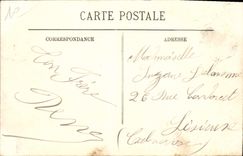 CARTE POSTALE
CORRESPONDANCE
ADRESSE
Ton Frère
René
Mademoiselle
Suzanne
26 Rue
Lisieux
Calvados